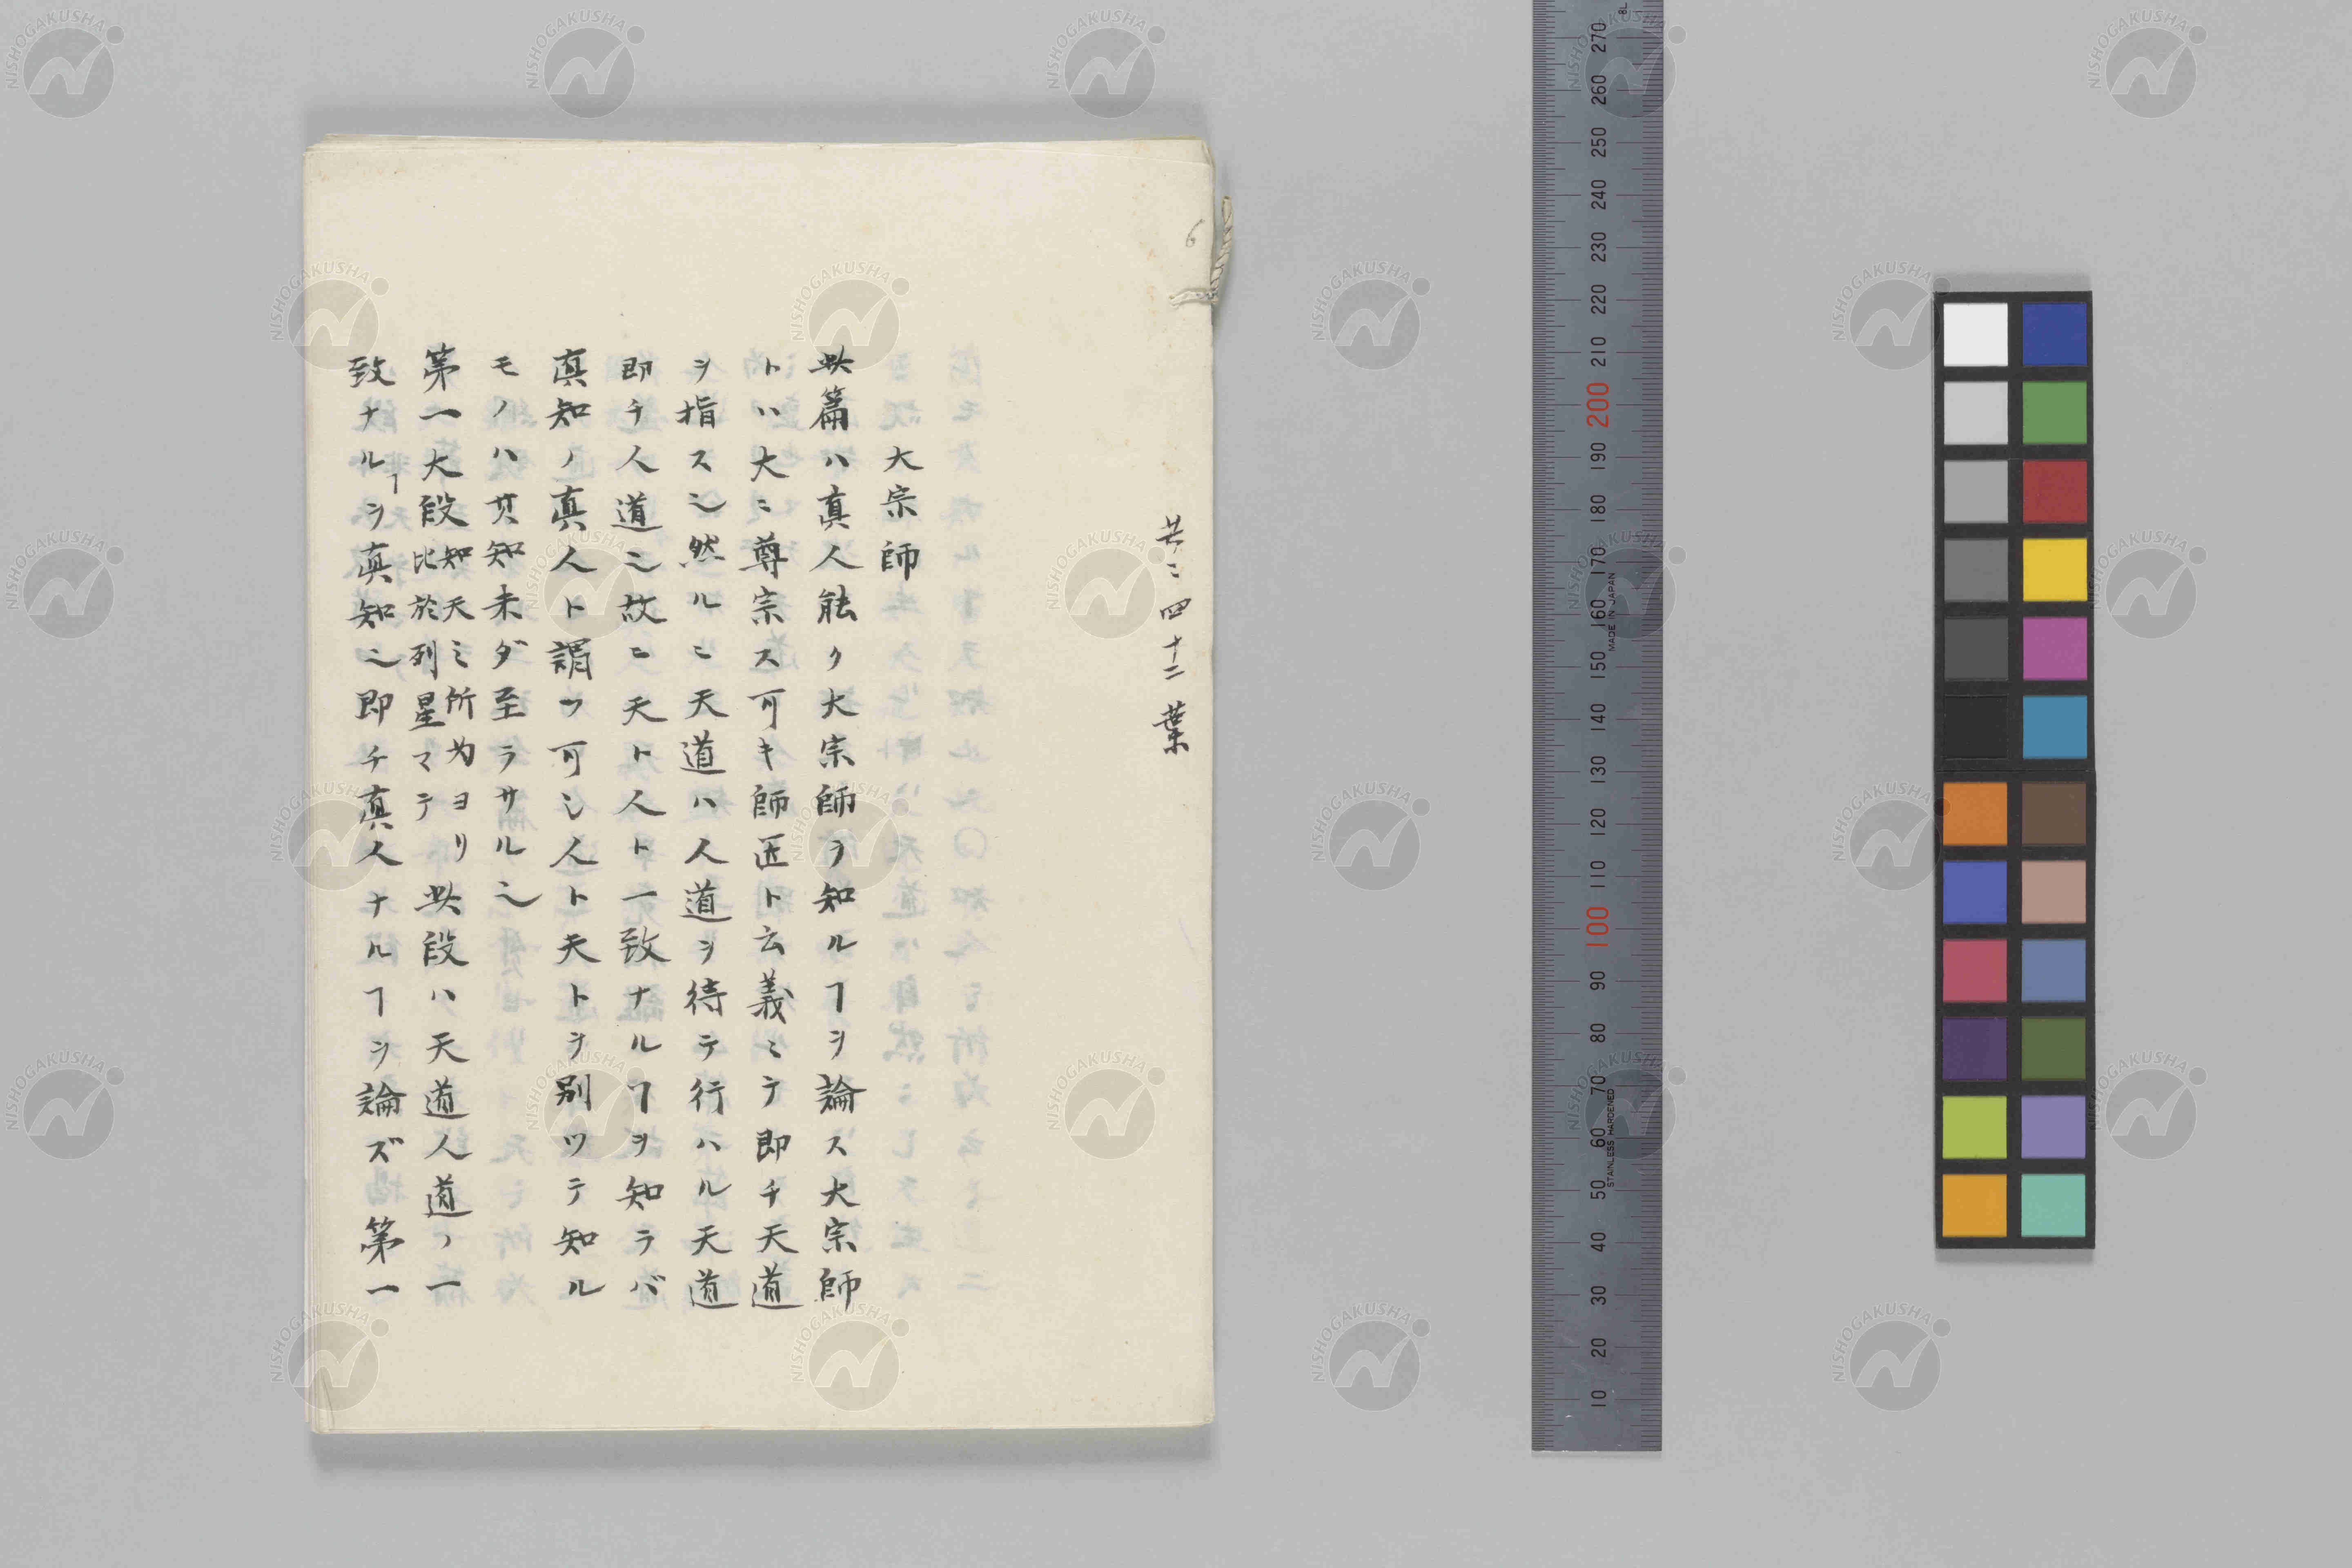 共ニ四十二葉
6
大宗師
此篇ハ真人能ク大宗師ヲ知ルヿヲ論ス大宗師
トハ大ニ尊宗ス可キ師匠ト云義ミテ即チ天道
ヲ指ス也然ルニ天道ハ人道ヲ待テ行ハル天道
即チ人道也故ニ天ト人ト一致ナルヿヲ知ラバ
真知ノ真人ト謂ツ可シ人ト天トヲ別ツテ知ル
モノハ其知未ダ至ラサル也
第一大段知天之所為ヨリ比於列星マテ此段ハ天道人道ノ一
致ナルヿヲ真知也即チ真人ナルヿヲ論ズ 第一
NISHOGAKUSHA
270
260
250
240
230
220
210
200
190
180
170
160
150
140
130
120
110
100
90
80
70
60
50
40
30
20
10
MADE IN JAPAN
STAINLESS HARDENED